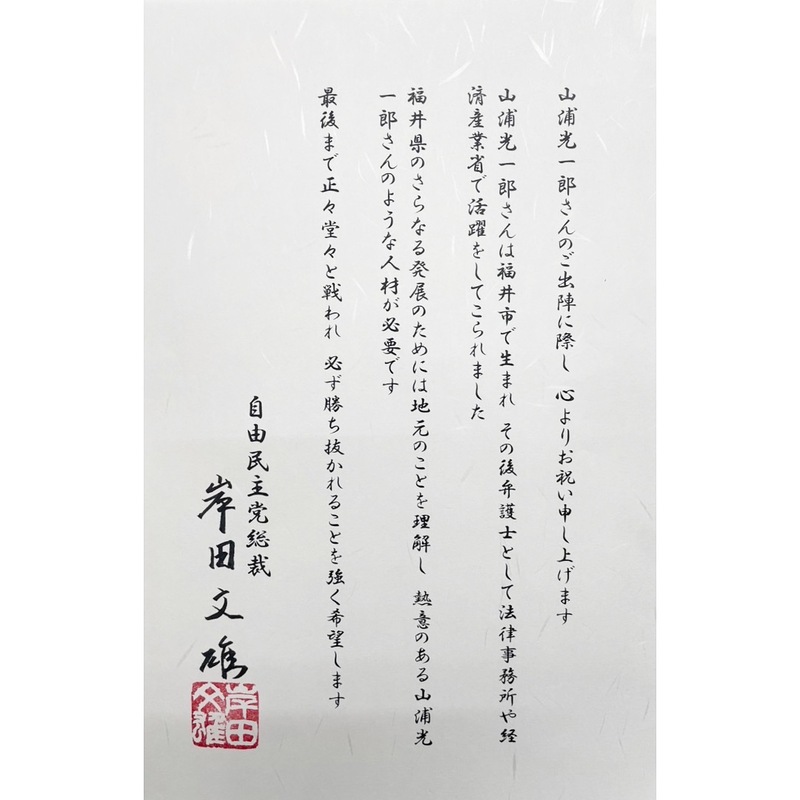 山浦光一郎さんのご出陣に際し 心よりお祝い申し上げます
山浦光一郎さんは福井市で生まれ その後弁護士として法律事務所や経
済産業省で活躍をしてこられました
福井県のさらなる発展のためには地元のことを理解し 熱意のある山浦光
一郎さんのような人材が必要です
最後まで正々堂々と戦われ 必ず勝ち抜かれることを強く希望します
自由民主党総裁
岸田文雄
岸田
文雄